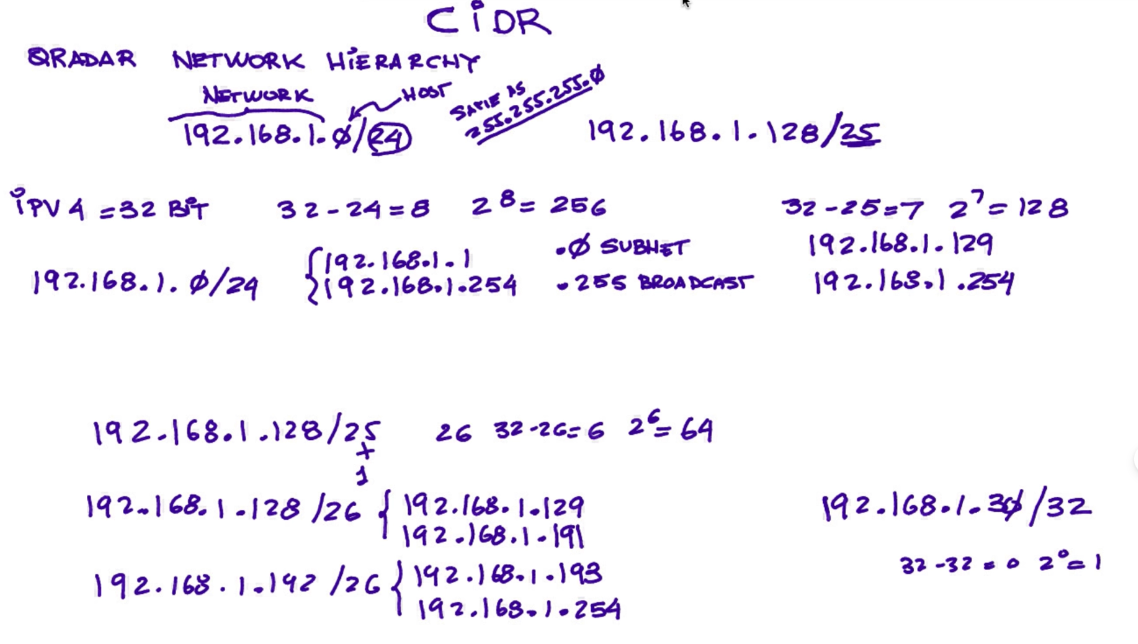 CIDR
QRADAR NETWORK HIERARCHY
NETWORK
HOST
SAME AS
255.255.255.0
192.168.1.0/24
192.168.1.128/25
IPV4 = 32 BIT 32-24=8 2^8 = 256
32-25=7 2^7 = 128
192.168.1.0/24
192.168.1.1
192.168.1.254
.0 SUBNET
.255 BROADCAST
192.168.1.129
192.168.1.254
192.168.1.128/25
+
1
26 32-26=6 2^6 = 64
192.168.1.128/26 { 192.168.1.129
192.168.1.191
192.168.1.192/26 { 192.168.1.193
192.168.1.254
192.168.1.30/32
32-32=0 2^0=1